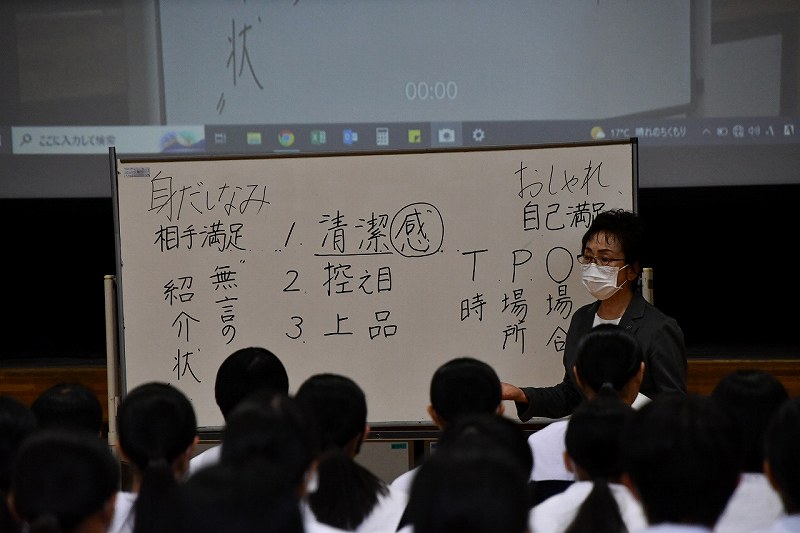 状"
00:00
ここに入力して検索
17°C 晴れのちくもり
A
身だしなみ
相手満足
"無言の
紹介状
1. 清潔感
2. 控え目
3. 上品
おしゃれ
自己満足
T.P.O
時
場所
場合